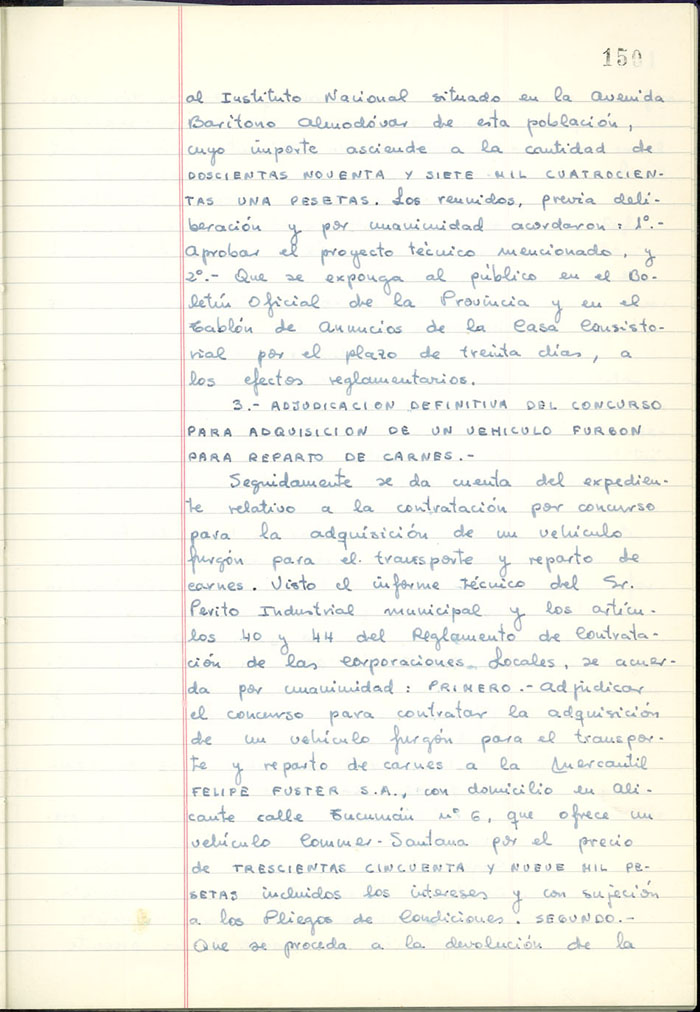 150
al Instituto Nacional situado en la avenida
Barítono Almodóvar de esta población,
cuyo importe asciende a la cantidad de
DOSCIENTAS NOVENTA Y SIETE MIL CUATROCIEN-
TAS UNA PESETAS. Los reunidos, previa deli-
beración y por unanimidad acordaron: 1º.-
Aprobar el proyecto técnico mencionado, y
2º.- Que se exponga al público en el Bo-
letín Oficial de la Provincia y en el
Tablón de Anuncios de la Casa Consisto-
rial por el plazo de treinta días, a
los efectos reglamentarios.
3.- ADJUDICACION DEFINITIVA DEL CONCURSO
PARA ADQUISICION DE UN VEHICULO FURGON
PARA REPARTO DE CARNES.-
Seguidamente se da cuenta del expedien-
te relativo a la contratación por concurso
para la adquisición de un vehículo
furgón para el transporte y reparto de
carnes. Visto el informe técnico del Sr.
Perito Industrial municipal y los artícu-
los 40 y 44 del Reglamento de Contrata-
ción de las Corporaciones Locales, se acuer-
da por unanimidad: PRIMERO.- Adjudicar
el concurso para contratar la adquisición
de un vehículo furgón para el transpor-
te y reparto de carnes a la Mercantil
FELIPE FUSTER S.A., con domicilio en Ali-
cante calle Tucumán nº 6, que ofrece un
vehículo Commer-Santana por el precio
de TRESCIENTAS CINCUENTA Y NUEVE MIL PE-
SETAS incluidos los intereses y con sujeción
a los Pliegos de Condiciones. SEGUNDO.-
Que se proceda a la devolución de la